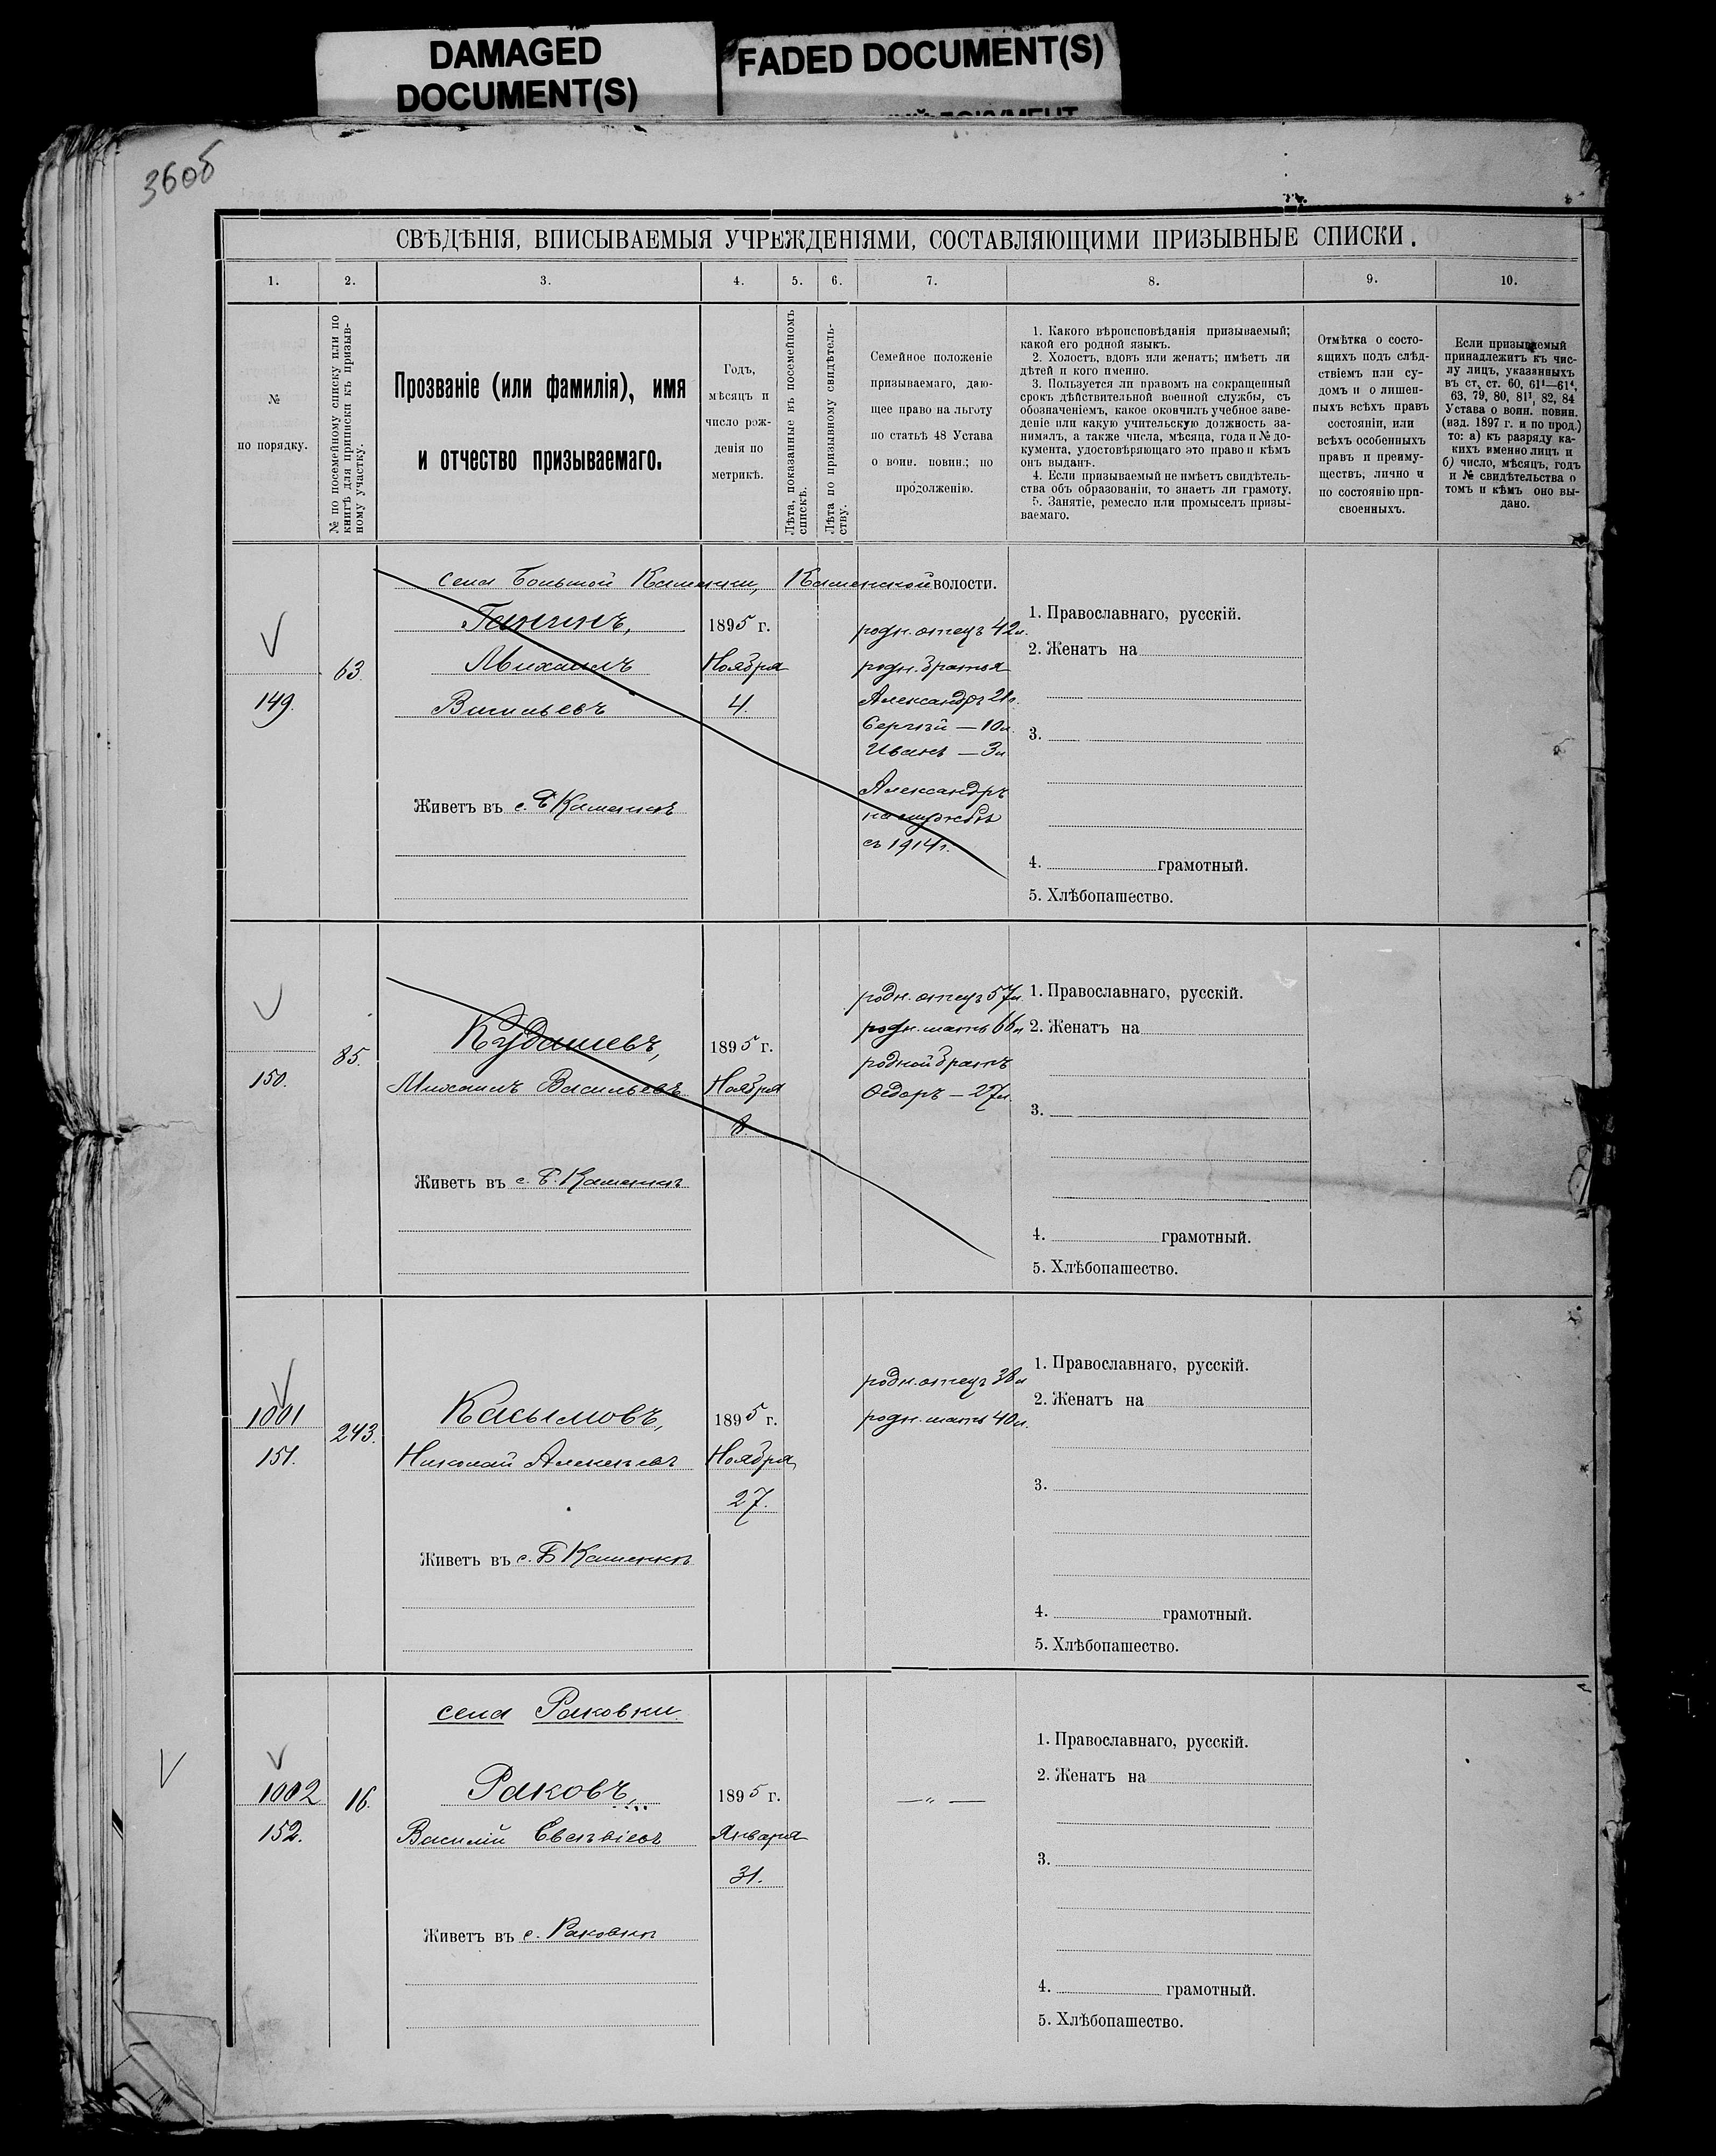 DAMAGED
DOCUMENT(S)
FADED DOCUMENT(S)
360б
СВѢДѢНІЯ, ВПИСЫВАЕМЫЯ УЧРЕЖДЕНІЯМИ, СОСТАВЛЯЮЩИМИ ПРИЗЫВНЫЕ СПИСКИ.
1. 2. 3. 4. 5. 6. 7. 8. 9. 10.
№
по порядку.
№ по посемейному списку или по
книгѣ для приписки къ призыв-
ному участку.
Прозваніе (или фамилія), имя
и отчество призываемаго.
Годъ,
мѣсяцъ и
число рож-
денія по
метрикѣ.
Лѣта, показанные въ посемейномъ
спискѣ.
Лѣта по призывному свидѣтель-
ству.
Семейное положеніе
призываемаго, даю-
щее право на льготу
по статьѣ 48 Устава
о воин. повин.; по
продолженію.
1. Какого вѣроисповѣданія призываемый;
какой его родной языкъ.
2. Холостъ, вдовъ или женатъ; имѣетъ ли
дѣтей и кого именно.
3. Пользуется ли правомъ на сокращенный
срокъ дѣйствительной военной службы, съ
обозначеніемъ, какое окончилъ учебное заве-
деніе или какую учительскую должность за-
нималъ, а также числа, мѣсяца, года и № до-
кумента, удостовѣряющаго это право и кѣмъ
онъ выданъ.
4. Если призываемый не имѣетъ свидѣтель-
ства объ образованіи, то знаетъ ли грамоту.
5. Занятіе, ремесло или промыселъ призы-
ваемаго.
Отмѣтка о состо-
ящихъ подъ слѣд-
ствіемъ или су-
домъ и о лишен-
ныхъ всѣхъ правъ
состоянія, или
всѣхъ особенныхъ
правъ и преиму-
ществъ, лично и
по состоянію при-
своенныхъ.
Если призываемый
принадлежитъ къ чис-
лу лицъ, указанныхъ
въ ст. ст. 60, 61¹—61⁴,
63, 79, 80, 81¹, 82, 84
Устава о воин. повин.
(изд. 1897 г. и по прод.)
то: а) къ разряду ка-
кихъ именно лицъ и
б) число, мѣсяцъ, годъ
и № свидѣтельства о
томъ и кѣмъ оно вы-
дано.
села Большой Каменки, Каменской волости.
149.
63.
Ганинъ,
Михаилъ
Васильевъ
Живетъ въ с. Б Каменкѣ
1895 г.
Ноября
4.
родн. отецъ 42л.
родн. братья
Александръ 21л.
Сергѣй — 10л.
Иванъ — 3л
Александръ
на службѣ
съ 1914г.
1. Православнаго, русскій.
2. Женатъ на
3.
4. грамотный.
5. Хлѣбопашество.
150.
85.
Кудашевъ,
Михаилъ Васильевъ
Живетъ въ с. Б. Каменкѣ
1895 г.
Ноября
8.
родн. отецъ 57л.
родн. мать 66л
родной братъ
Ѳедоръ — 27л.
1. Православнаго, русскій.
2. Женатъ на
3.
4. грамотный.
5. Хлѣбопашество.
1001
151.
243.
Касымовъ,
Николай Алексѣевъ
Живетъ въ с. Б Каменкѣ
1895 г.
Ноября
27.
родн. отецъ 38л
родн. мать 40л.
1. Православнаго, русскій.
2. Женатъ на
3.
4. грамотный.
5. Хлѣбопашество.
села Раковки
1002
152.
16.
Раковъ,
Василій
Живетъ въ с. Раковкѣ
1895 г.
Января
31.
— „ —
1. Православнаго, русскій.
2. Женатъ на
3.
4. грамотный.
5. Хлѣбопашество.